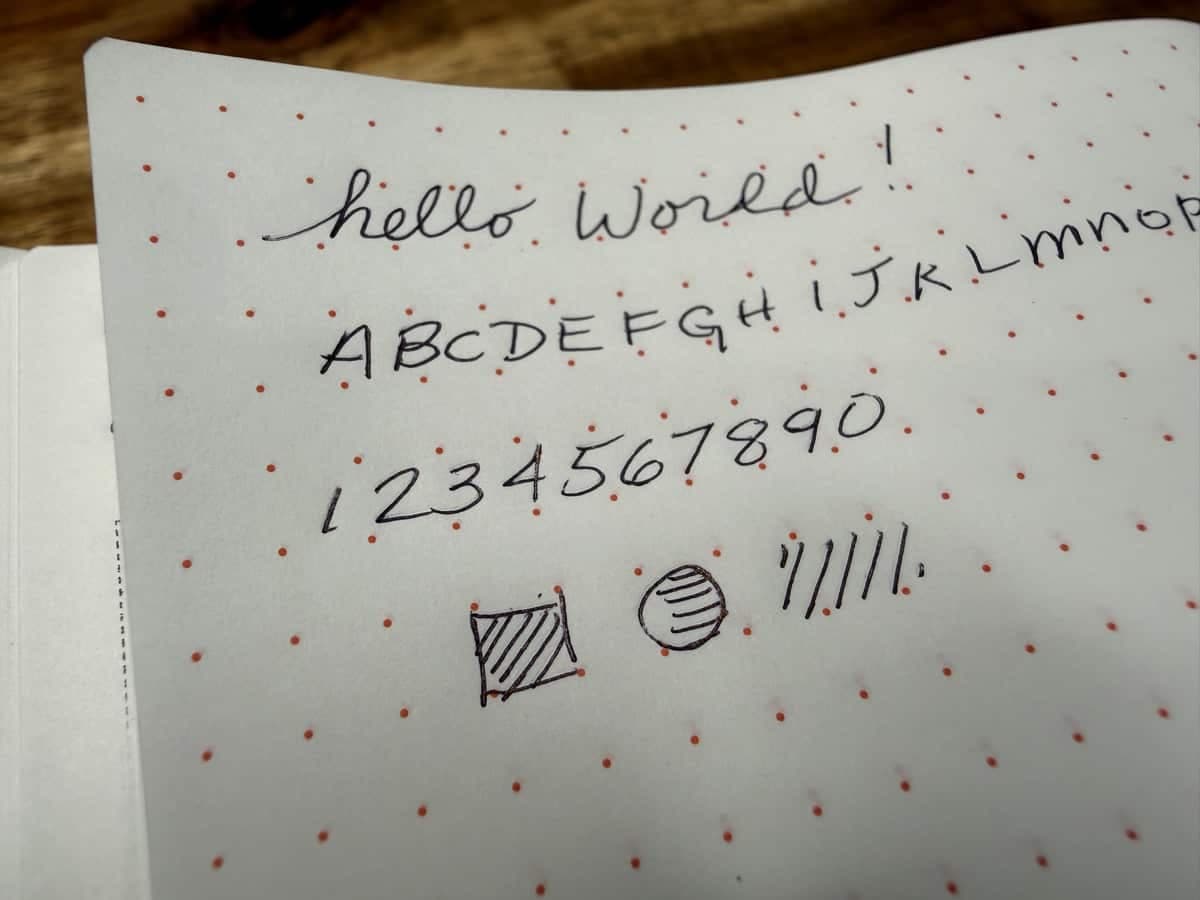 hello World!
A B C D E F G H I J K L m n o P
1 2 3 4 5 6 7 8 9 0